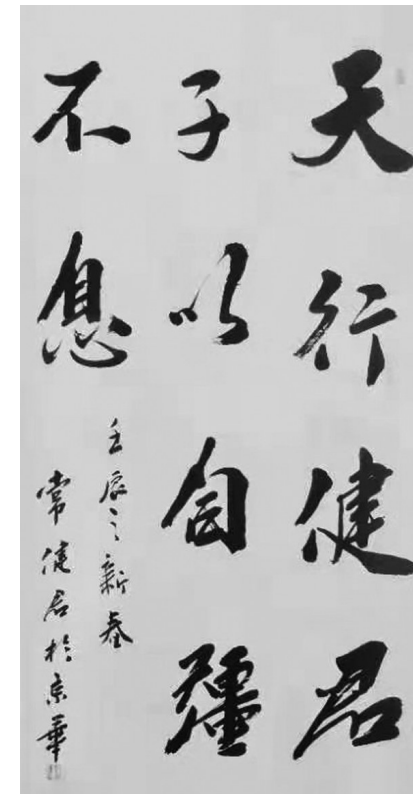 天行健君
子以自彊
不息
壬辰之新春
常健君於京華